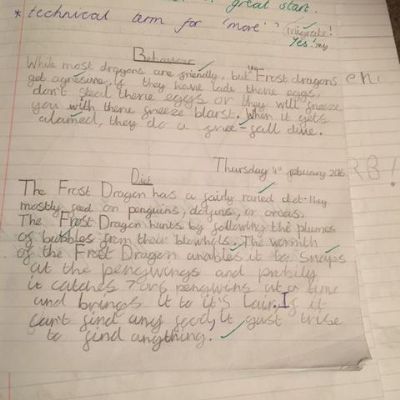 great start.
* technical term for 'move'? migrate!
Yes!
Behaviour
While most dragons are friendly, but the Frost dragons
get agresure if they have lade there eggs,
don't steal there eggs or they will freeze
you with there freeze blarst. When it gets
alarmed, they do a free-fall dive.
Thursday 4th February 2016
Diet
The Frost Dragon has a fairly varied diet. They
mostly feed on penguins, dolfins, or orcas.
The Frost Dragon hunts by following the plumes
of bubbles from their blowhols. The warmth
of the Frost Dragon enables it to snaps
at the pengwings and
it catches 7 or 6 pengwins at a time
and brings it to it's lair. If it
can't find any food, it just trise
to find anything.